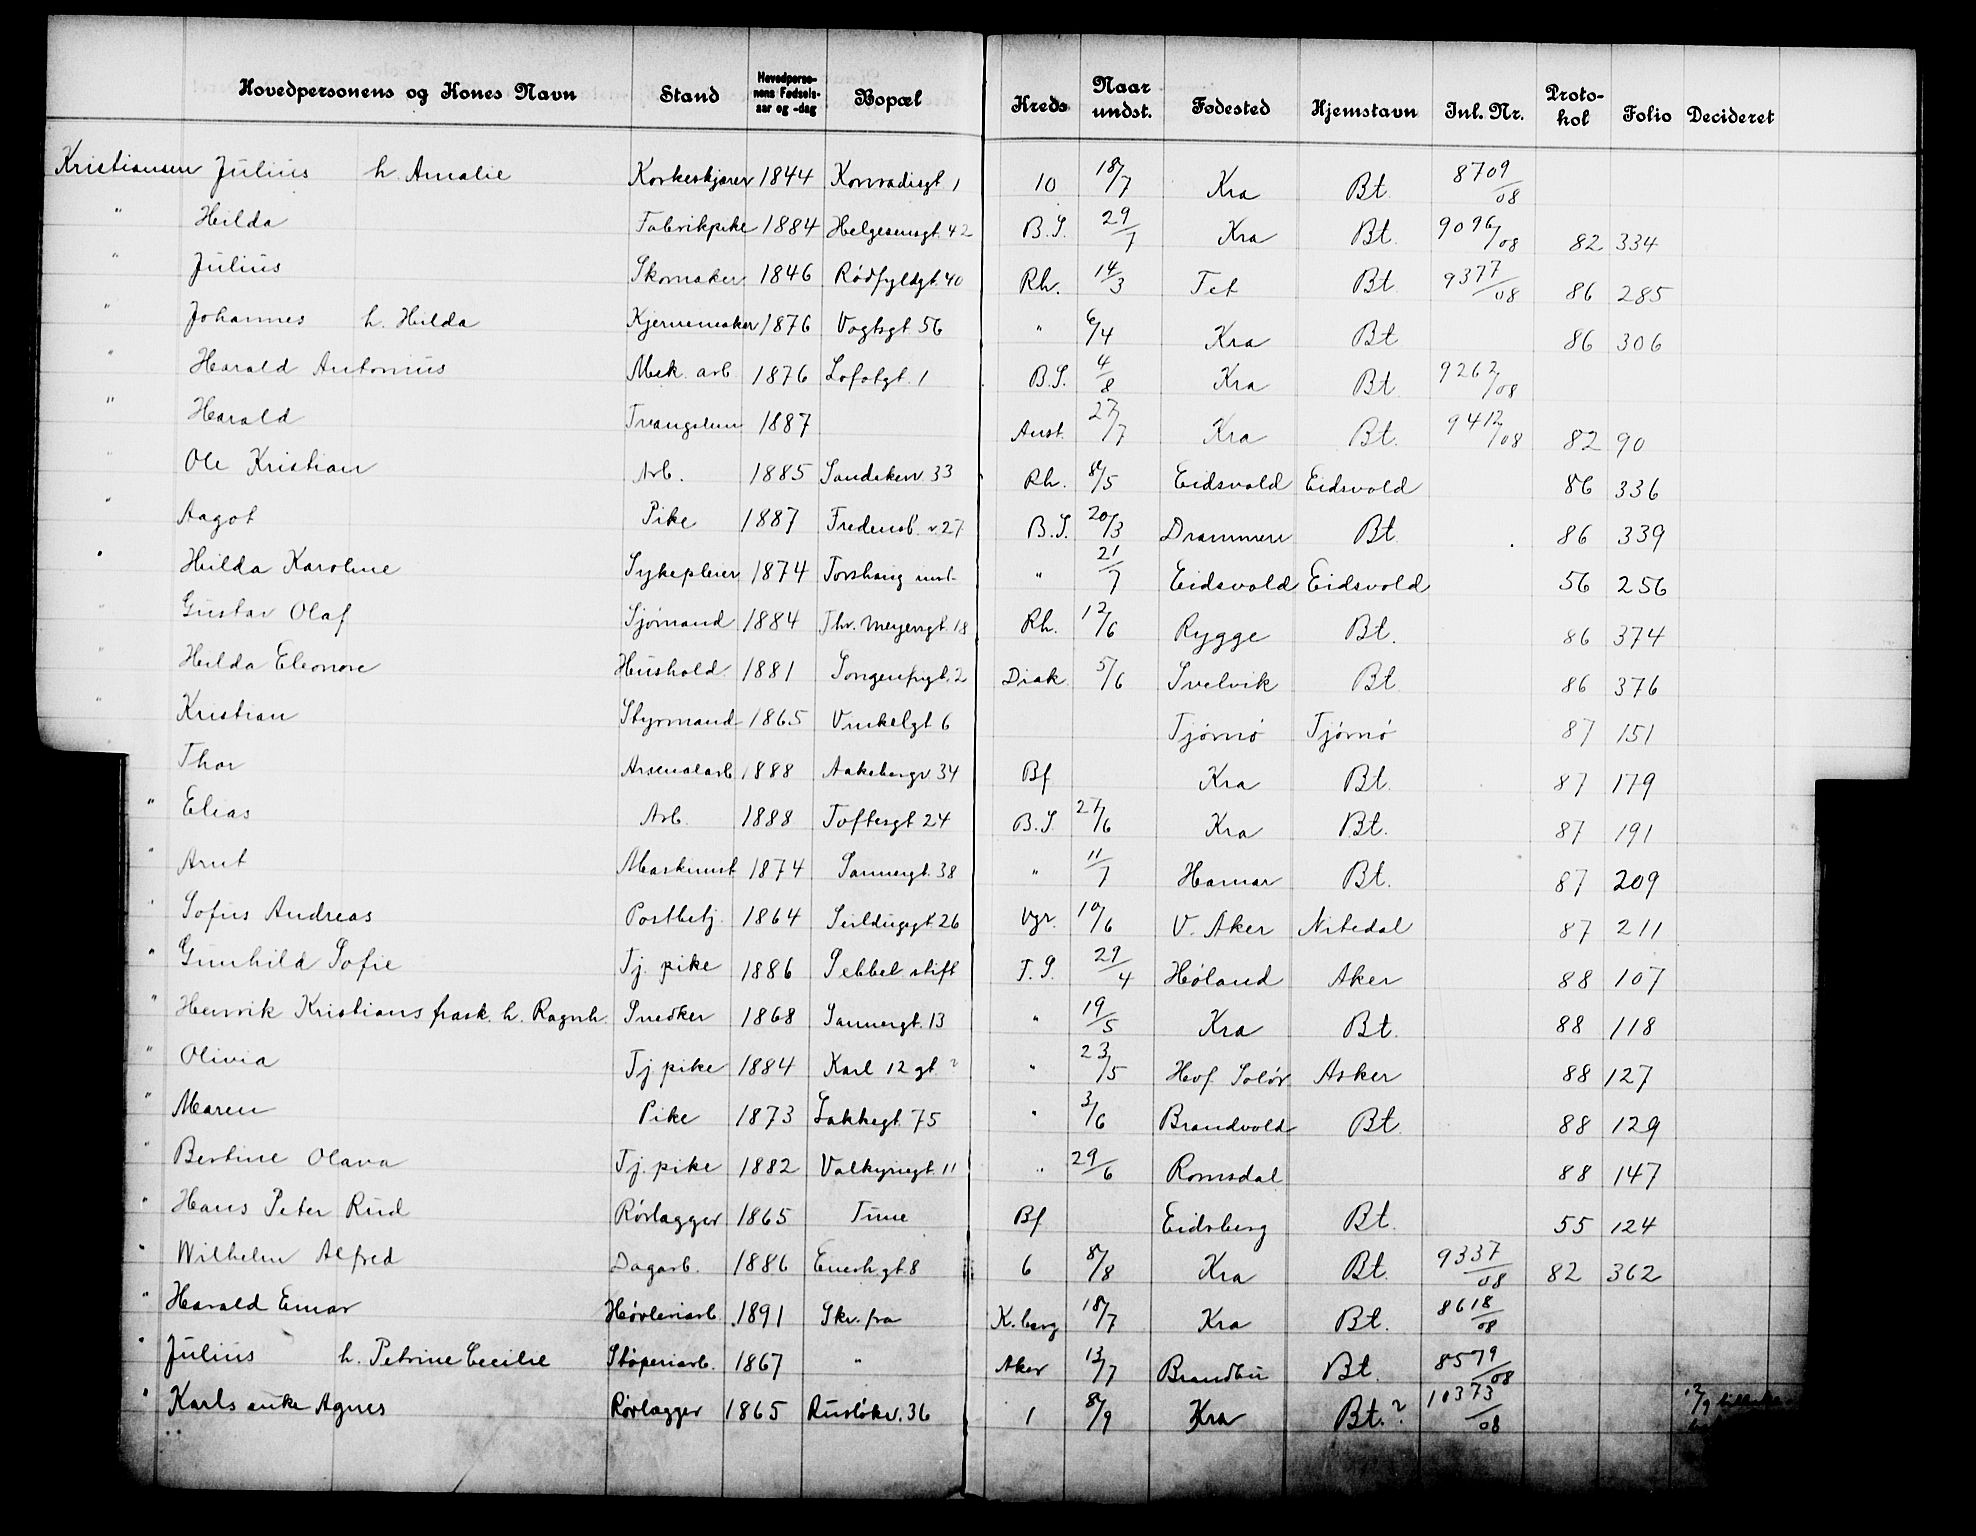 Hovedpersonens og Kones Navn Stand Hovedperso-nens Fødsels-aar og -dag Bopæl Kreds Naar undst. Fødested Hjemstavn Inl. Nr. Proto-kol Folio Decideret
Kristiansen Julius h. Amalie Korkeskjærer 1844 Konradisgt 1 10 18/7 Kra Bt. 8709/08
" Hilda Fabrikpike 1884 Helgesensgt. 42 B.S. 29/7 Kra Bt. 9096/08 82 334
" Julius Skomaker 1846 Rødfyldgt. 40 Rh. 14/3 Tet Bt. 9377/08 86 285
" Johannes h. Hilda 1876 Vogtsgt 56 " 6/4 Kra Bt 86 306
" Harald Antonius Mek. arb. 1876 Lofotgt. 1 B.S. 4/8 Kra Bt 9262/08
" Harald Tvangslem 1887 Anst. 27/7 Kra Bt. 9412/08 82 90
" Ole Kristian Arb. 1885 Sandakerv. 33 Rh. 8/5 Eidsvold Eidsvold 86 336
" Aagot Pike 1887 Fredensb. v 27 B.S. 20/3 Drammen Bt 86 339
" Hilda Karoline Sykepleier 1874 Torshaug inst. " 21/7 Eidsvold Eidsvold 56 256
" Gustav Olaf Sjømand 1884 Thv. Meyersgt. 18 Rh. 12/6 Rygge Bt. 86 374
" Hilda Eleonore Hushold. 1881 Sorgenfrigt. 2 Diak. 5/6 Svelvik Bt 86 376
" Kristian Styrmand 1865 Vinkelgt 6 Tjømø Tjømø 87 151
Thor Arsenalarb. 1888 Aakebergv 34 Bf Kra Bt. 87 179
" Elias Arb. 1888 Toftesgt 24 B.S. 27/6 Kra Bt. 87 191
" Arnt Maskinist 1874 Sannergt. 38 " 11/7 Hamar Bt. 87 209
" Sofus Andreas Postbetj. 1864 Seildugsgt 26 Vgr. 10/6 V. Aker Nitedal 87 211
" Gunhild Sofie Tj. pike 1886 Sebbel stift F.S. 29/4 Høland Aker 88 107
" Henrik Kristians frask. h. Ragnh. Snedker 1868 Sannergt. 13 " 19/5 Kra Bt. 88 118
" Olivia Tj. pike 1884 Karl 12 gt ? " 23/5 Hof Solør Asker 88 127
" Maren Pike 1873 Lakkegt 75 " 3/6 Brandvold Bt 88 129
" Bertine Olava Tj. pike 1882 Valkyriegt. 11 " 29/6 Romsdal 88 147
" Hans Peter Rud Rørlægger 1865 Tune Bf Eidsberg Bt. 55 124
" Wilhelm Alfred Dagarb. 1886 Enerh.gt 8 6 8/8 Kra Bt. 9337/08 82 362
" Harald Einar Høvleriarb. 1891 Skr. fra K.berg 18/7 Kra Bt. 8618/08
" Julius h. Petrine Cecilie Støperiarb. 1867 " Aker 13/7 Brandbu Bt. 8579/08
" Karls enke Agnes Rørlægger 1865 Ruseløkv. 36 1 8/9 Kra Bt. ? 10373/08 12/9